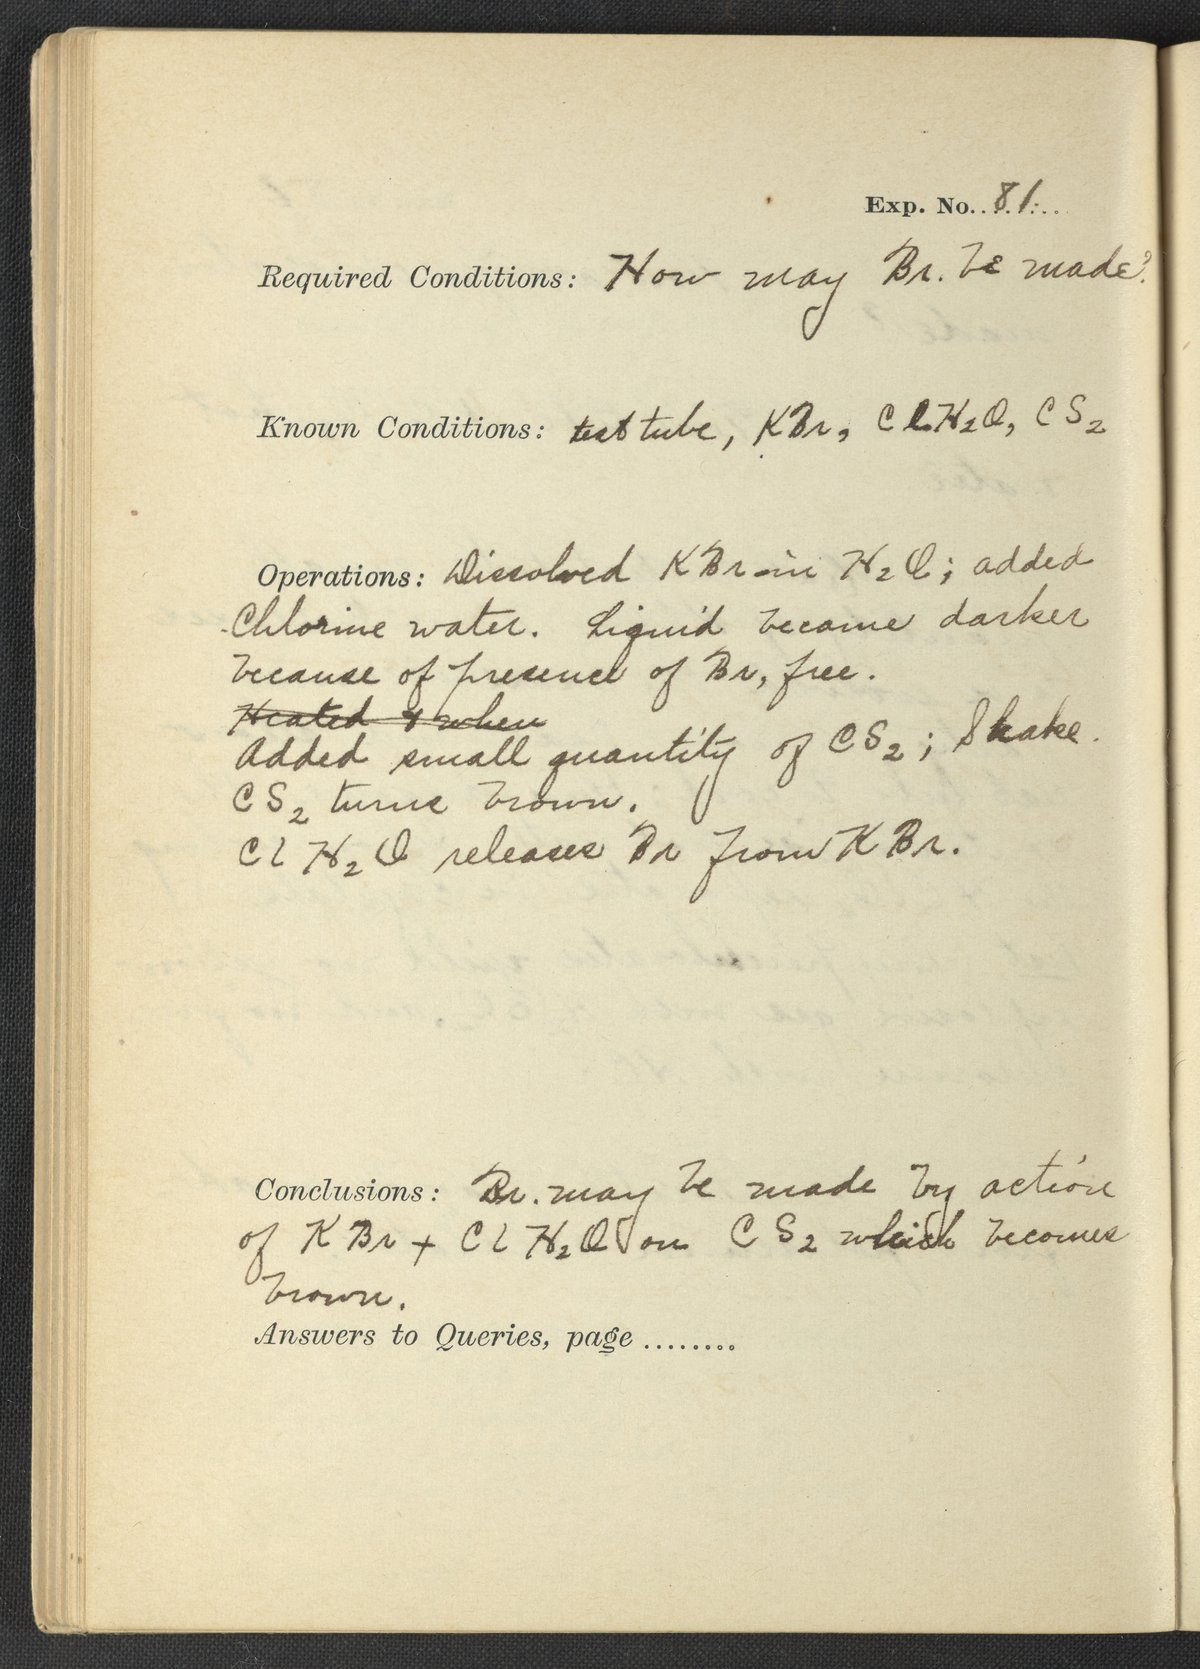 Exp. No. 81
Required Conditions: How may Br. be made?
Known Conditions: test tube, KBr, Cl H2O, CS2
Operations: Dissolved KBr in H2O; added
Chlorine water. Liquid became darker
because of presence of Br, free.
Heated & when
Added small quantity of CS2; Shake.
CS2 turns brown.
Cl H2O releases Br from KBr.
Conclusions: Br. may be made by action
of KBr + Cl H2O on CS2 which becomes
brown.
Answers to Queries, page ........